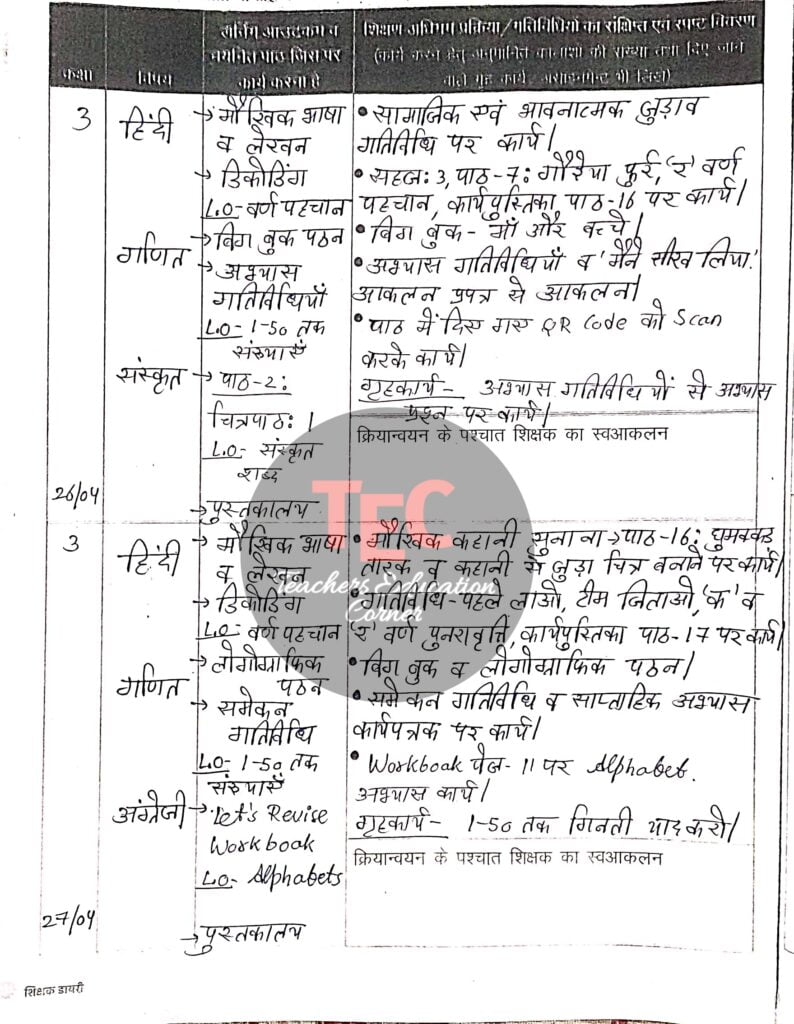 कक्षा
विषय
लर्निंग आउटकम व
चयनित पाठ जिस पर
कार्य करना है
शिक्षण अधिगम प्रक्रिया/गतिविधियों का संक्षिप्त एवं स्पष्ट विवरण
(कार्य करने हेतु अनुमानित कालांशों की संख्या तथा दिए जाने
वाले गृह कार्य/असाइनमेन्ट भी लिखें)
3
हिंदी
→ मौखिक भाषा
व लेखन
→ डिकोडिंग
L.O- वर्ण पहचान
• सामाजिक एवं भावनात्मक जुड़ाव
गतिविधि पर कार्य।
• सहज: 3, पाठ-7: गौरैया फुर्र, 'र' वर्ण
पहचान, कार्यपुस्तिका पाठ-16 पर कार्य।
गणित
→ बिग बुक पठन
→ अभ्यास
गतिविधियाँ
L.O- 1-50 तक
संख्याएँ
• बिग बुक- माँ और बच्चे।
• अभ्यास गतिविधियाँ व 'मैंने सीख लिया'
आकलन प्रपत्र से आकलन।
• पाठ में दिए गए QR Code को Scan
करके कार्य।
संस्कृत
→ पाठ-2:
चित्रपाठ: 1
L.O- संस्कृत
शब्द
→ पुस्तकालय
गृहकार्य- अभ्यास गतिविधियों से अभ्यास
प्रश्न पर कार्य।
क्रियान्वयन के पश्चात शिक्षक का स्वआकलन
26/04
TEC
Teachers Education
Corner
3
हिंदी
→ मौखिक भाषा
व लेखन
→ डिकोडिंग
L.O- वर्ण पहचान
• मौखिक कहानी सुनाना→पाठ-16: घुमक्कड़
तारक व कहानी से जुड़ा चित्र बनाने पर कार्य।
• गतिविधि-पहले लाओ, टीम जिताओ, 'क' व
'र' वर्ण पुनरावृत्ति, कार्यपुस्तिका पाठ-17 पर कार्य।
गणित
→ लोगोग्राफिक
पठन
→ समेकन
गतिविधि
L.O- 1-50 तक
संख्याएँ
• बिग बुक व लोगोग्राफिक पठन।
• समेकन गतिविधि व साप्ताहिक अभ्यास
कार्यपत्रक पर कार्य।
अंग्रेजी
→ Let's Revise
Workbook
L.O- Alphabets
→ पुस्तकालय
• Workbook पेज-11 पर Alphabet.
अभ्यास कार्य।
गृहकार्य- 1-50 तक गिनती याद करो।
क्रियान्वयन के पश्चात शिक्षक का स्वआकलन
27/04
शिक्षक डायरी